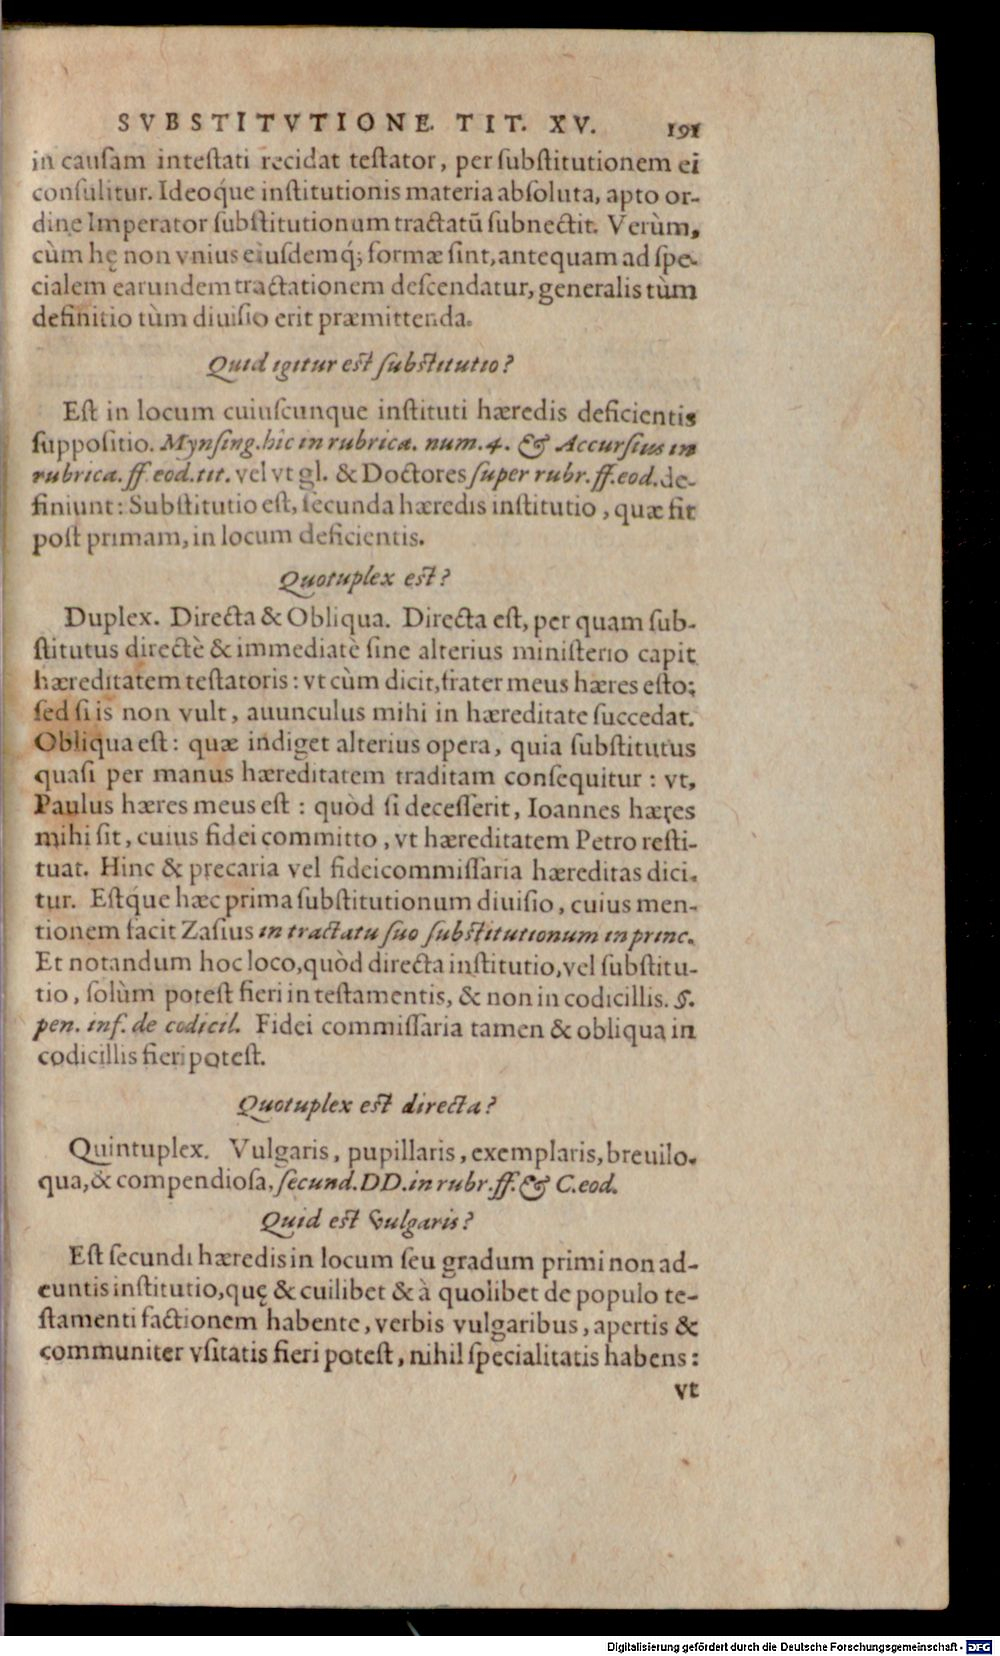 SVBSTITVTIONE. TIT. XV. 191
in causam intestati recidat testator, per substitutionem ei
consulitur. Ideoq́ue institutionis materia absoluta, apto or-
dine Imperator substitutionum tractatũ subnectit. Verùm,
cùm hę non vnius eiusdemq́; formæ sint, antequam ad spe-
cialem earundem tractationem descendatur, generalis tùm
definitio tùm diuisio erit præmittenda.
Quid igitur est substitutio?
Est in locum cuiuscunque instituti hæredis deficientis
suppositio. Mynsing. hic in rubrica. num. 4. & Accursius in
rubrica. ff. eod. tit. vel vt gl. & Doctores super rubr. ff. eod. de-
finiunt: Substitutio est, secunda hæredis institutio, quæ fit
post primam, in locum deficientis.
Quotuplex est?
Duplex. Directa & Obliqua. Directa est, per quam sub-
stitutus directè & immediatè sine alterius ministerio capit
hæreditatem testatoris: vt cùm dicit, frater meus hæres esto;
sed si is non vult, auunculus mihi in hæreditate succedat.
Obliqua est: quæ indiget alterius opera, quia substitutus
quasi per manus hæreditatem traditam consequitur: vt,
Paulus hæres meus est: quòd si decesserit, Ioannes hæres
mihi sit, cuius fidei committo, vt hæreditatem Petro resti-
tuat. Hinc & precaria vel fideicommissaria hæreditas dici-
tur. Estq́ue hæc prima substitutionum diuisio, cuius men-
tionem facit Zasius in tractatu suo substitutionum in princ.
Et notandum hoc loco, quòd directa institutio, vel substitu-
tio, solùm potest fieri in testamentis, & non in codicillis. §.
pen. inf. de codicil. Fidei commissaria tamen & obliqua in
codicillis fieri potest.
Quotuplex est directa?
Quintuplex. Vulgaris, pupillaris, exemplaris, breuilo-
qua, & compendiosa, secund. DD. in rubr. ff. & C. eod.
Quid est vulgaris?
Est secundi hæredis in locum seu gradum primi non ad-
euntis institutio, quę & cuilibet & à quolibet de populo te-
stamenti factionem habente, verbis vulgaribus, apertis &
communiter vsitatis fieri potest, nihil specialitatis habens:
vt
Digitalisierung gefördert durch die Deutsche Forschungsgemeinschaft - DFG